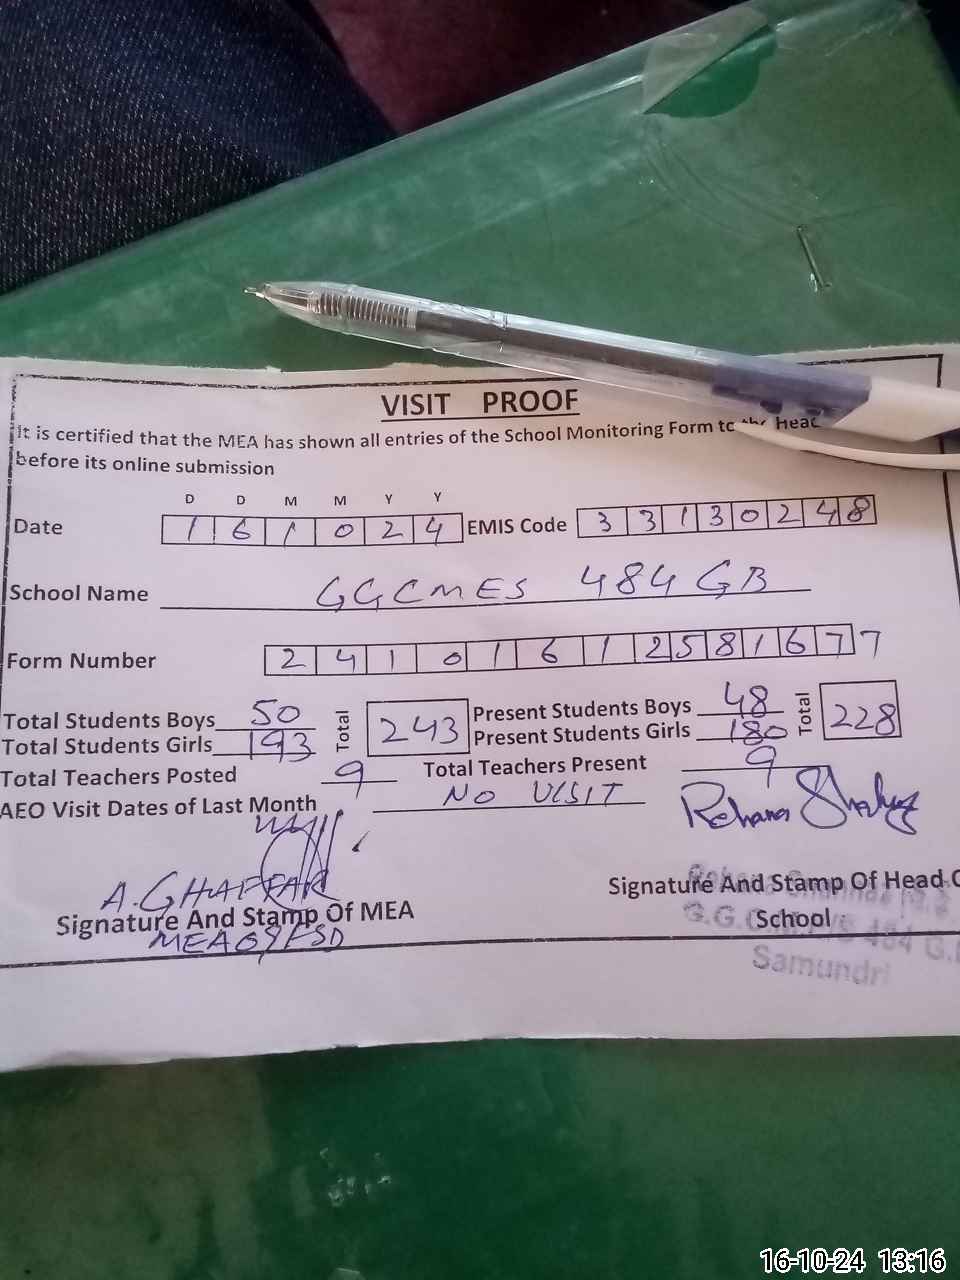 VISIT PROOF
It is certified that the MEA has shown all entries of the School Monitoring Form to the Head
before its online submission
D D M M Y Y
Date 1 6 1 0 2 4 EMIS Code 3 3 1 3 0 2 4 8
School Name GGCMES 484 GB
Form Number 2 4 1 0 1 6 1 2 5 8 1 6 7 7
Total Students Boys 50 Total 243 Present Students Boys 48 Total 228
Total Students Girls 193 Present Students Girls 180
Total Teachers Posted 9 Total Teachers Present 9
AEO Visit Dates of Last Month NO VISIT
Rehana
A. GHAFFAR
Signature And Stamp Of MEA Signature And Stamp Of Head
School
484 G.
Samundri
16-10-24 13:16